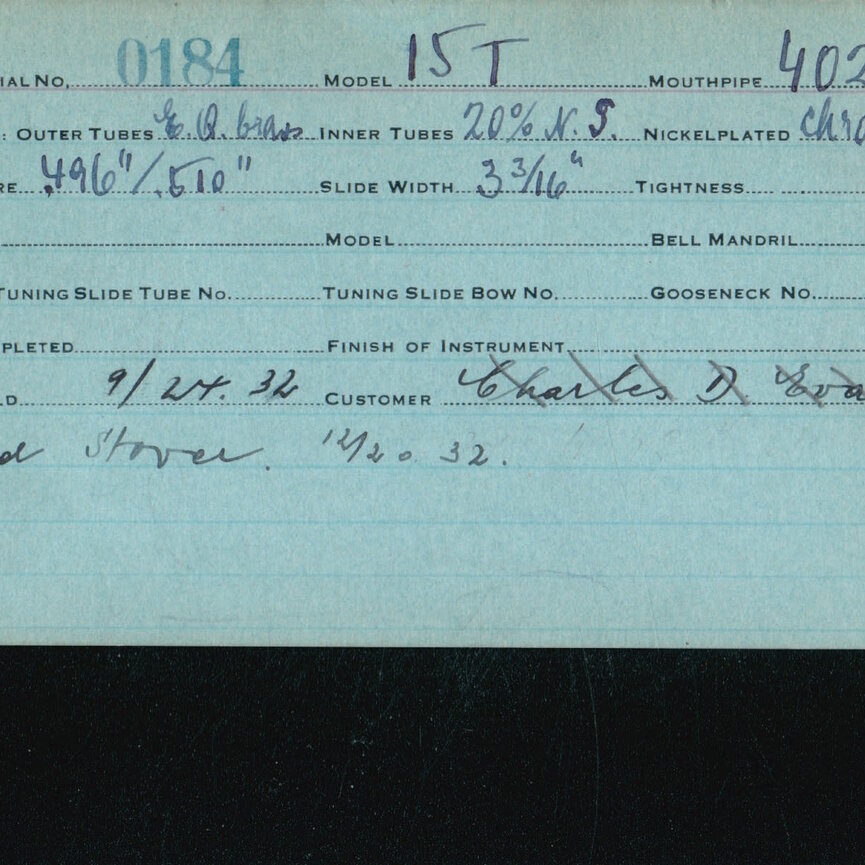 IAL NO. 0184 MODEL 15 T MOUTHPIPE 402
: OUTER TUBES E. Q. brass INNER TUBES 20% N. S. NICKELPLATED chro
RE .496"/.510" SLIDE WIDTH 3 3/16" TIGHTNESS
MODEL BELL MANDRIL
TUNING SLIDE TUBE NO. TUNING SLIDE BOW NO. GOOSENECK NO.
PLETED FINISH OF INSTRUMENT
D 9/24. 32 CUSTOMER Charles D. Eva
d Stover. 12/20 32.